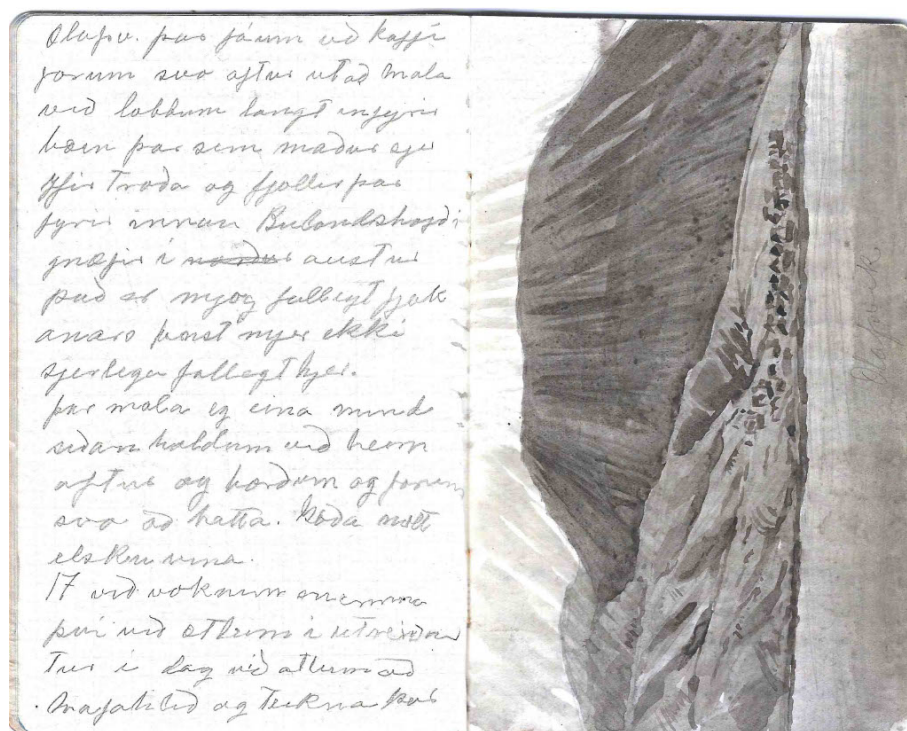 Olafsv. þar fáum við kaffi
förum svo aftur út að mala
við löbbum langt inn fyrir
bæin þar sem maður sjer
yfir Froða og fjöllin þar
fyrir innan Bulandshofdi
gnæfir i norður austur
það er mjög fallegt fjall
anars þikist mjer ekki
sjerlega fallegt hjer.
þar mala eg eina mind
siðan höldum við heim
aftur og borðum og förum
svo að hátta. Góða nótt
elsku vina.
17 við voknum snemma
þvi við ætlum i utreiðar
tur i dag við ætlum að
Majahlið og teikna þar
Olafsvik.